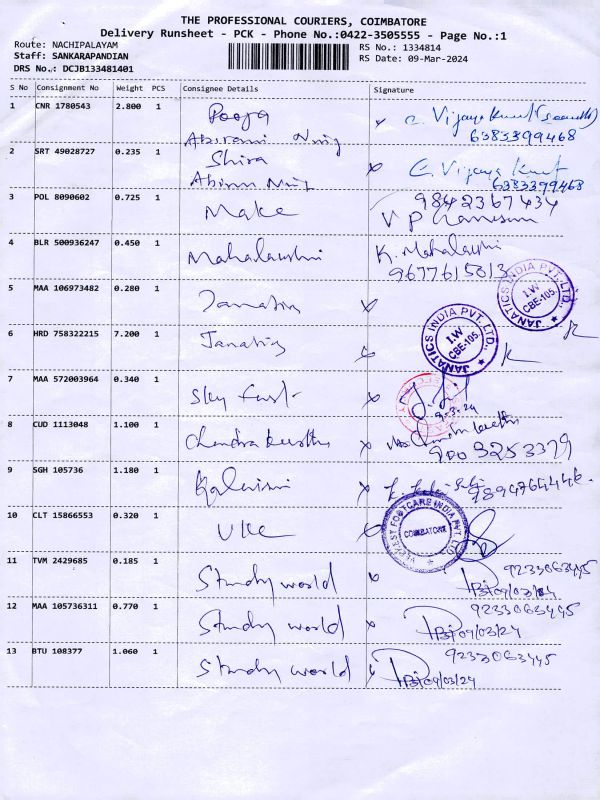 THE PROFESSIONAL COURIERS, COIMBATORE
Delivery Runsheet - PCK - Phone No.:0422-3505555 - Page No.:1
Route: NACHIPALAYAM
RS No.: 1334814
Staff: SANKARAPANDIAN
RS Date: 09-Mar-2024
DRS No.: DCJB133481401
S No Consignment No Weight PCS Consignee Details Signature
1 CNR 1780543 2.800 1 Pooja
6383399468
2 SRT 49028727 0.235 1 Shira
6383399468
3 POL 8090602 0.725 1 Make
9842367434
4 BLR 500936247 0.450 1 Mahalakshmi K. Mahalakshmi
9677615013
5 MAA 106973482 0.280 1 Janatics
JANATICS INDIA PVT. LTD.,
I.W
CBE-105.
6 HRD 758322215 7.200 1 Janatics
JANATICS INDIA PVT. LTD.,
I.W
CBE-105.
7 MAA 572003964 0.340 1 Sky
9-3-24
8 CUD 1113048 1.100 1 Chandra
9003253379
9 SGH 105736 1.180 1
10 CLT 15866553 0.320 1 VKC
FOOTCARE INDIA PVT. LTD
COIMBATORE
11 TVM 2429685 0.185 1 Study world
9233063445
09/03/24
12 MAA 105736311 0.770 1 Study world
9233063445
09/03/24
13 BTU 108377 1.060 1 Study world
9233063445
09/03/24